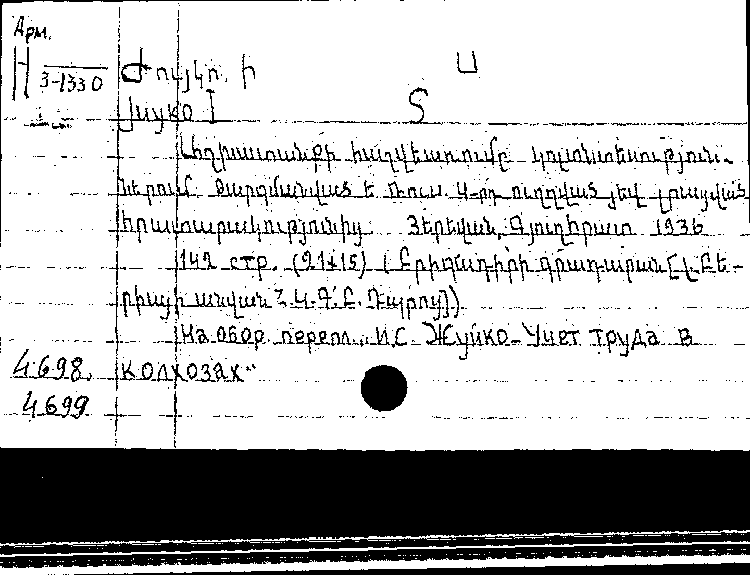 Арм.
Н 3-1330
Ժույկո. Ի Ս
Жуйко I S
Աշխատանքի հաշվառումը կոլտնտեսություն-
ներում. Թարգմանված է ռուս. 4-րդ ուղղված յեվ լրացված
հրատարակությունից. Յերեվան, Գյուղհրատ 1936
142 стр. (21x15) (Բրիգադիրի գրադարան [Լ. Բե-
րիայի անվան Հ.Կ.Գ.Բ. Դպրոց])
На обор. перепл.: И.С. Жуйко-Учет труда в
4698, колхозах"
4699